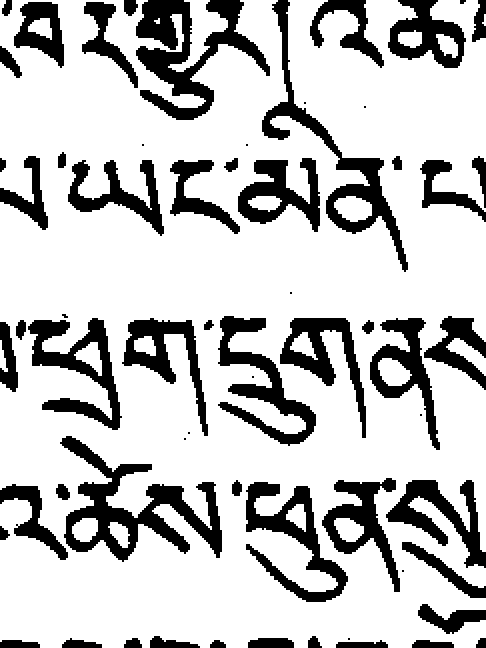 བར་གྱུར། འཆ
པ་ཡང་མིན་པ
ཕྲག་དྲུག་ནས
འ་ཆོས་ཕུན་སུ